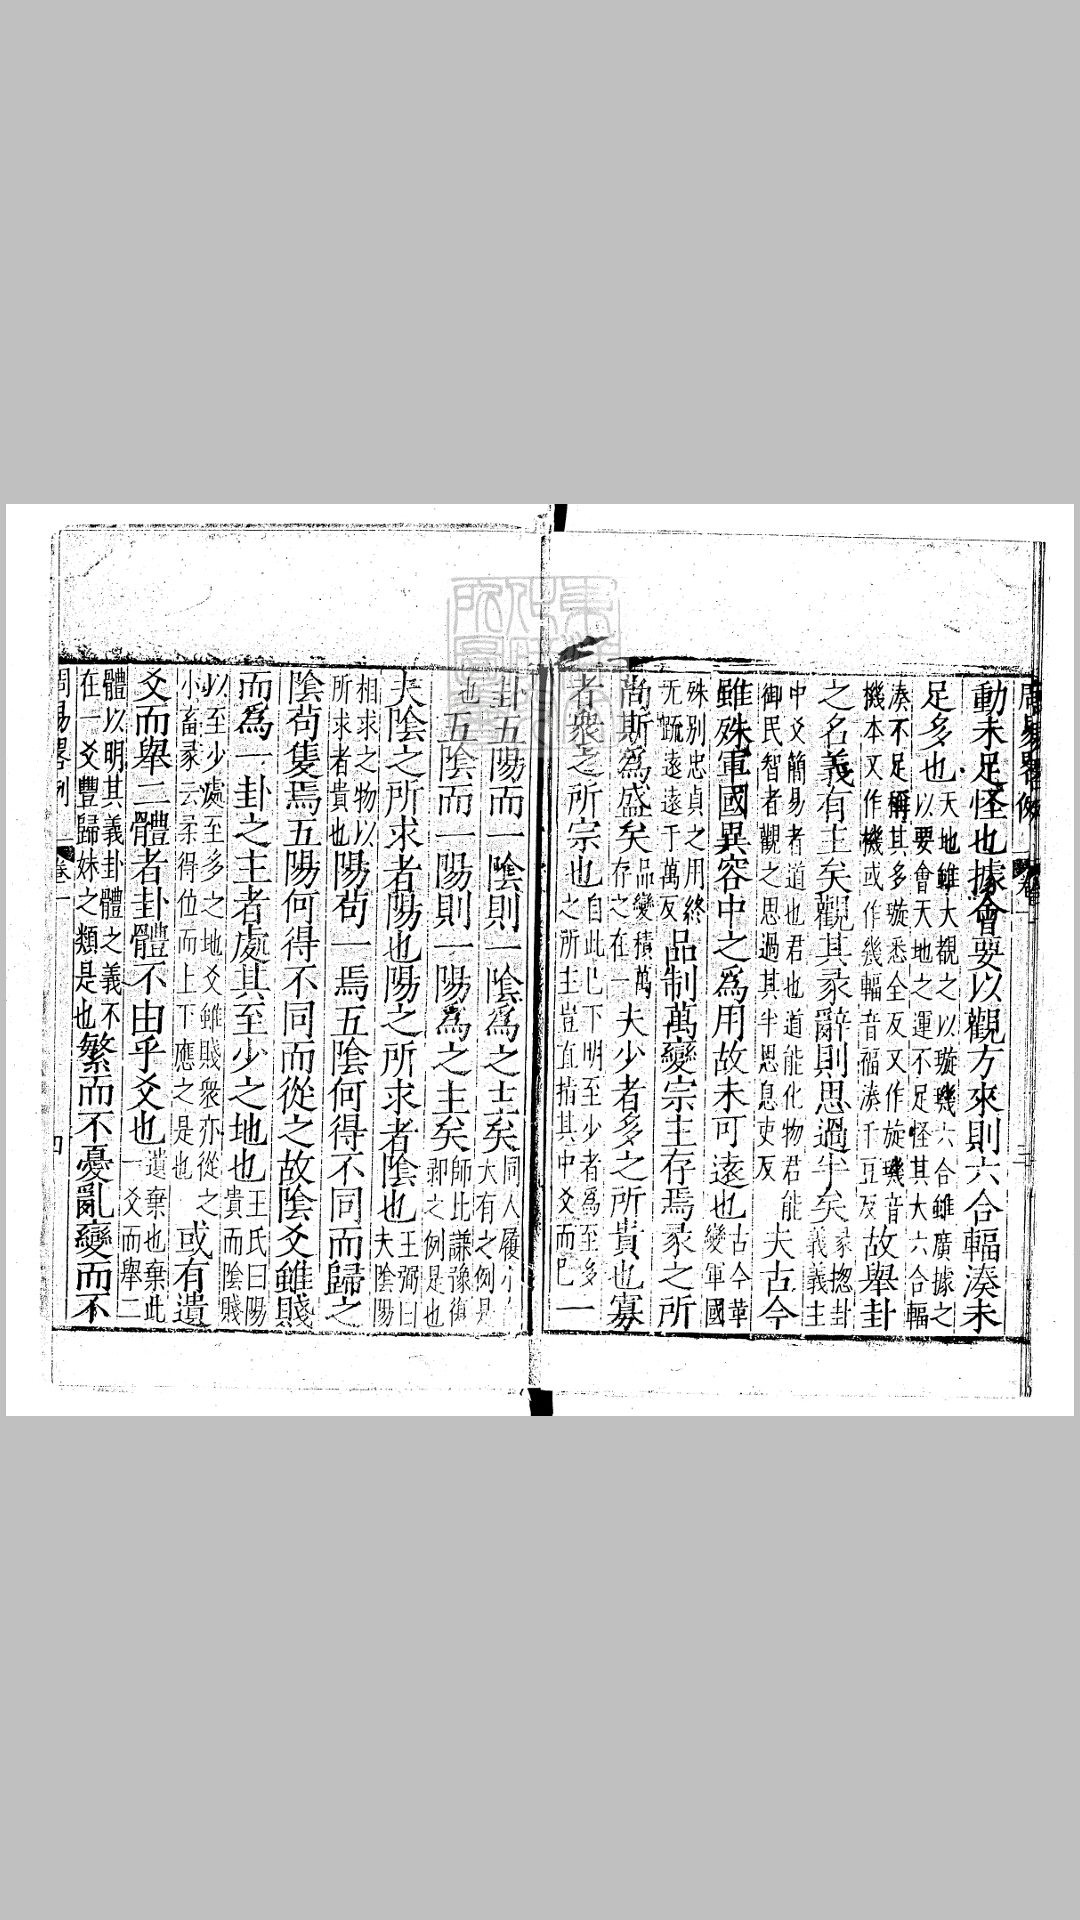 周易畧例 卷一
動未足怪也據會要以觀方來則六合輻湊未
足多也天地雖大覩之以璇璣六合雖廣據之
以要會天地之運不足怪其大六合輻
湊不足稱其多璇悉全反又作旋璣音
機本又作機或作幾輻音福湊千豆反故舉卦
之名義有主矣觀其彖辭則思過半矣彖揔卦
義義主
中爻簡易者道也君也道能化物君能
御民智者觀之思過其半思息吏反夫古今
雖殊軍國異容中之爲用故未可遠也古今革
變軍國
殊別忠貞之用終
无䟽遠遠于萬反品制萬變宗主存焉彖之所
尚斯爲盛矣品變積萬
存之在一夫少者多之所貴也寡
者衆之所宗也自此已下明至少者爲至多
之所主豈直指其中爻而已一
卦五陽而一陰則一陰爲之主矣同人履小
大有之例是
也五陰而一陽則一陽爲之主矣師比謙豫復
剥之例是也
夫陰之所求者陽也陽之所求者陰也王弼曰
夫陰陽
相求之物以
所求者貴也陽苟一焉五陰何得不同而歸之
陰苟隻焉五陽何得不同而從之故陰爻雖賤
而爲一卦之主者處其至少之地也王氏曰陽
貴而陰賤
以至少處至多之地爻雖賤衆亦從之
小畜彖云柔得位而上下應之是也或有遺
爻而舉二體者卦體不由乎爻也遺棄也棄此
一爻而舉二
體以明其義卦體之義不
在一爻豐歸妹之類是也繁而不憂亂變而不
周易畧例 卷一 四